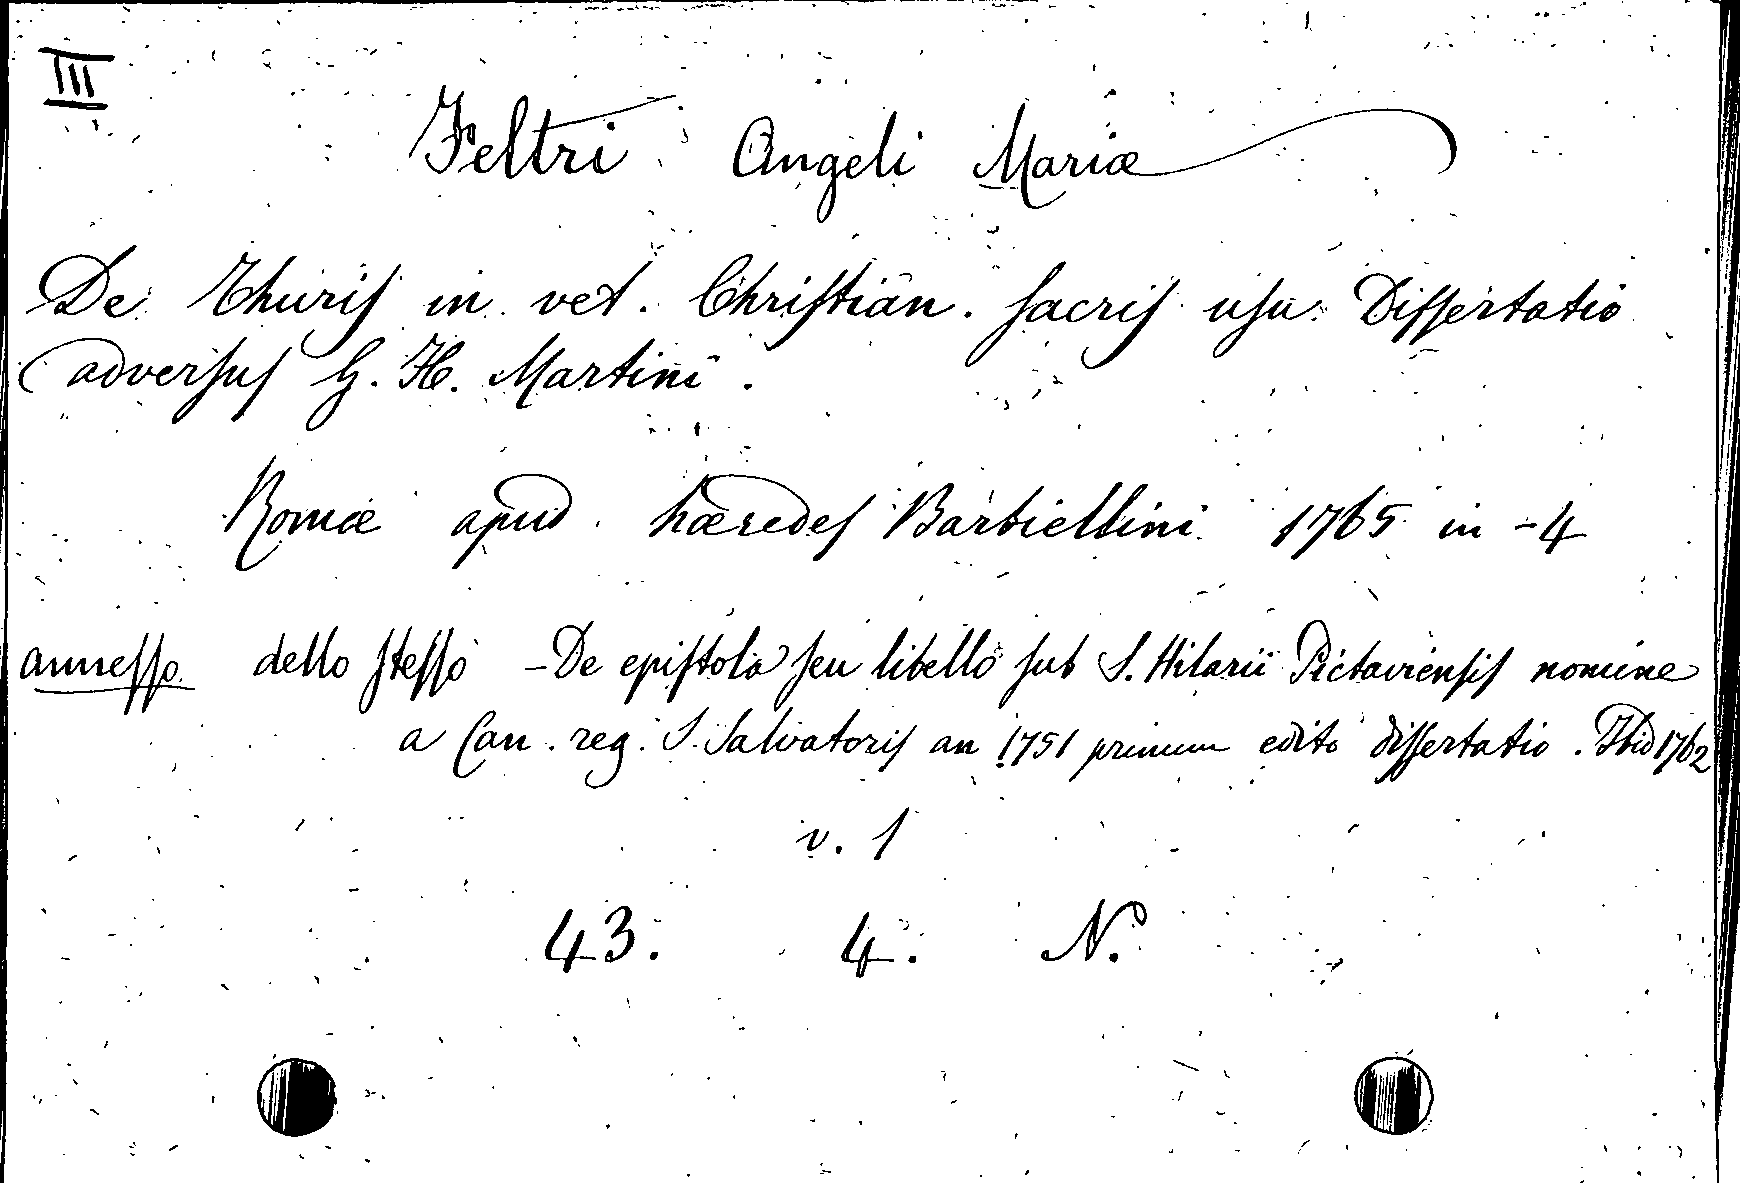 III
Feltri Angeli Mariæ
De Thuris in vet. Christian. sacris usu Dissertatio
adversus G. H. Martini.
Romæ apud hæredes Barbiellini 1765 in -4
annesso dello stesso - De epistola seu libello sub S. Hilarii Pictaviensis nomine
a Can. reg. S. Salvatoris an 1751 primum edito dissertatio. Ibid 1762
v. 1
43. 4. N.